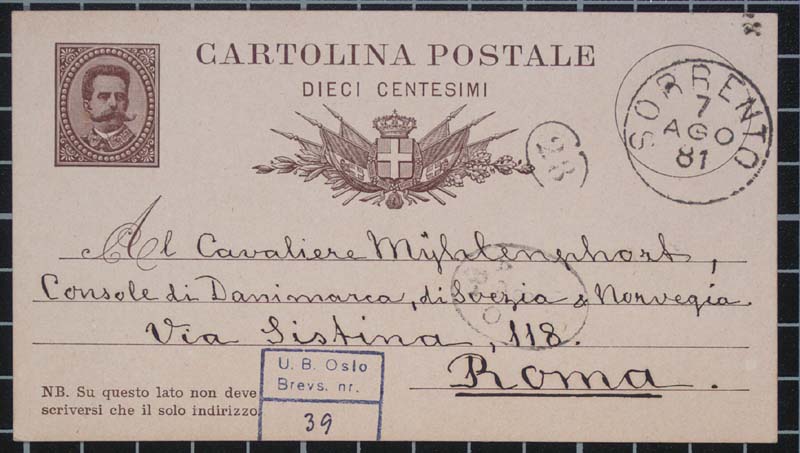 CARTOLINA POSTALE
DIECI CENTESIMI
SORRENTO
7
AGO
81
28
Al Cavaliere Mÿhlenphort,
Console di Danimarca, di Svezia & Norvegia.
Via Sistina, 118.
Roma.
U. B. Oslo
Brevs. nr.
39
NB. Su questo lato non deve
scriversi che il solo indirizzo